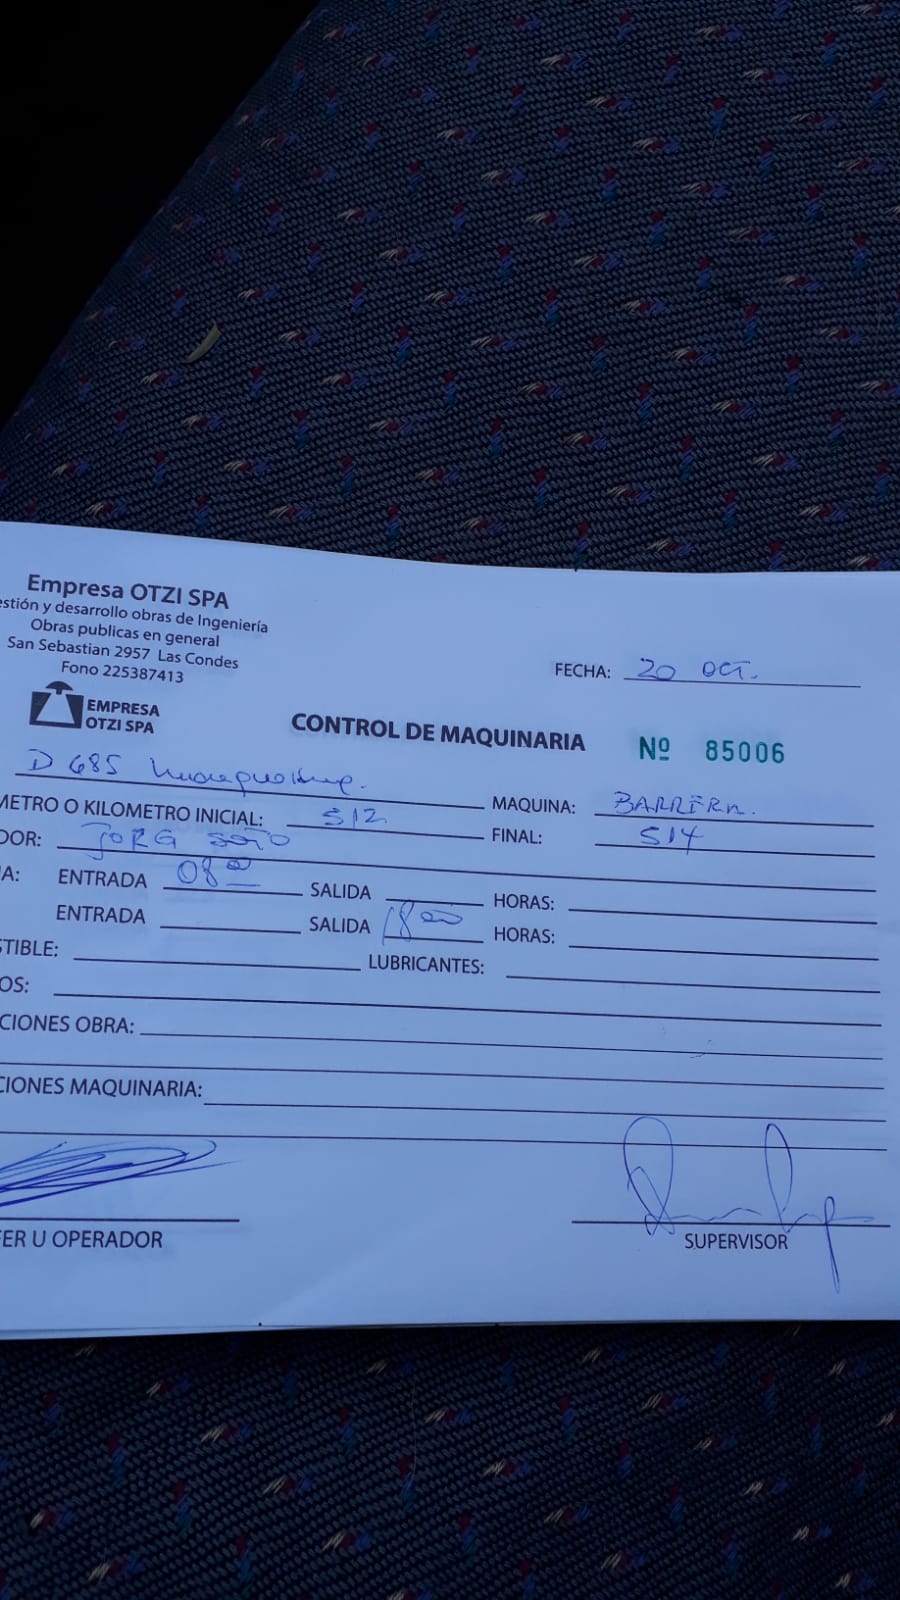 Empresa OTZI SPA
estión y desarrollo obras de Ingeniería
Obras publicas en general
San Sebastian 2957 Las Condes
Fono 225387413
EMPRESA
OTZI SPA
FECHA: 20 OCT.
CONTROL DE MAQUINARIA Nº 85006
D 685
MAQUINA: BARRERA.
METRO O KILOMETRO INICIAL: 512 FINAL: 514
DOR: JORG SOTO
A: ENTRADA 08 00 SALIDA HORAS:
ENTRADA SALIDA 18 00 HORAS:
STIBLE: LUBRICANTES:
OS:
CIONES OBRA:
CIONES MAQUINARIA:
FER U OPERADOR SUPERVISOR